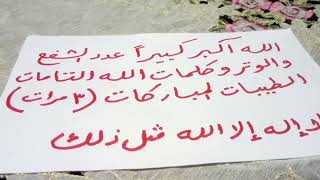 الله اكبر كبيراً عدد الشفع
والوتر وكلمات الله التامات
الطيبات المباركات (٣ مرات)
لا إله إلا الله مثل ذلك